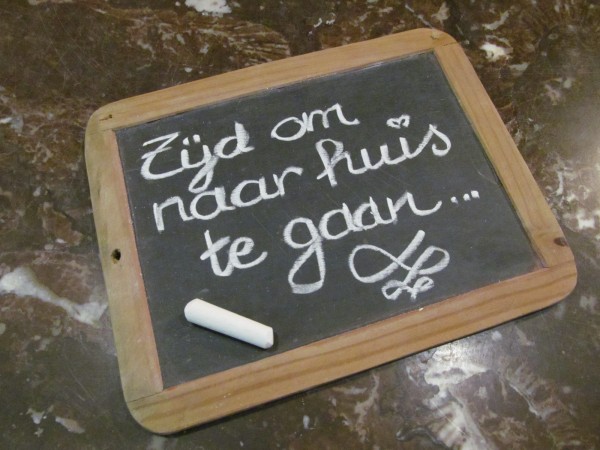 Zijd om
naar huis
te gaan...